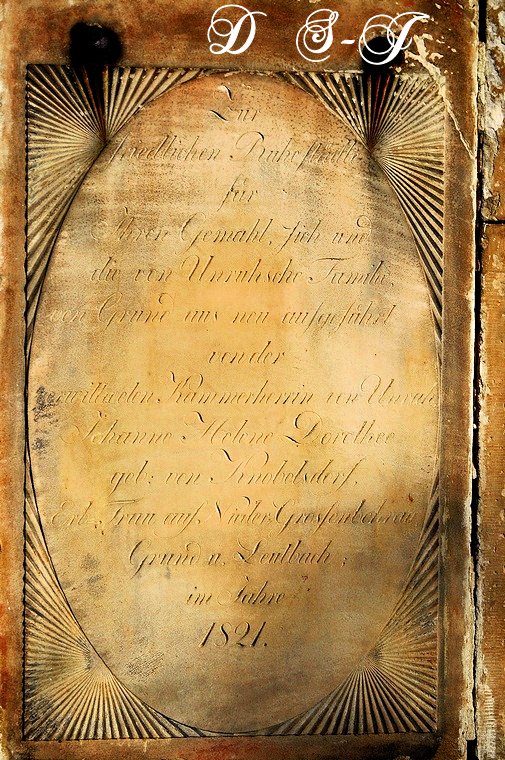 D S-J
Zur
friedlichen Ruhestätte
für
Ihren Gemahl, sich und
die von Unruhsche Familie,
von Grund aus neu aufgeführt
von der
verwittweten Kammerherrin von Unruh
Johanne Helene Dorothee
geb: von Knobelsdorf,
Erb Frau auf Nieder
Grund u. Leutbach;
im Jahre
1821.